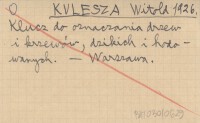 O KULESZA Witold 1926.
Klucz do oznaczania drzew
i krzewów, dzikich i hodo-
wanych. — Warszawa.